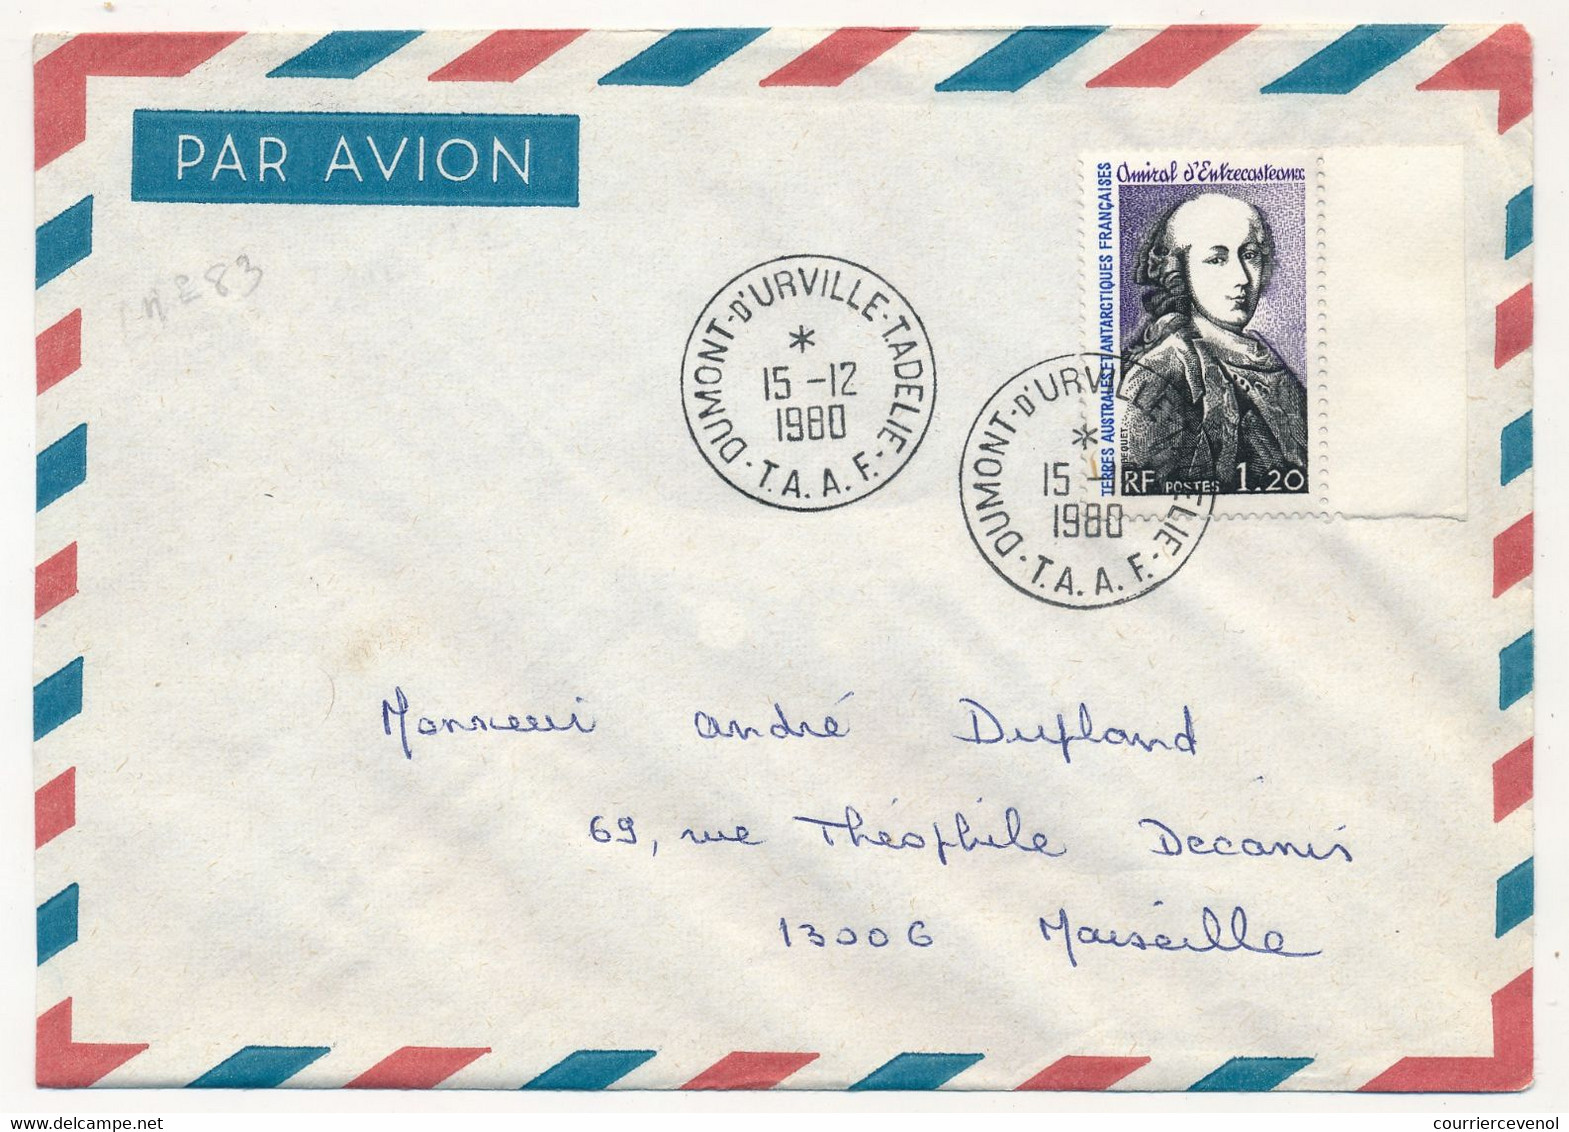 PAR AVION
Amiral d'Entrecasteaux
TERRES AUSTRALES ET ANTARCTIQUES FRANÇAISES
BEQUET
RF POSTES 1.20
n° 83
DUMONT-D'URVILLE-T.ADELIE
*
15 -12
1980
· T.A.A.F. ·
DUMONT-D'URVILLE-T.ADELIE
*
15 -1
1980
· T.A.A.F. ·
Monsieur André Dufland
69, rue Théophile Decanis
13006 Marseille
courriercevenol